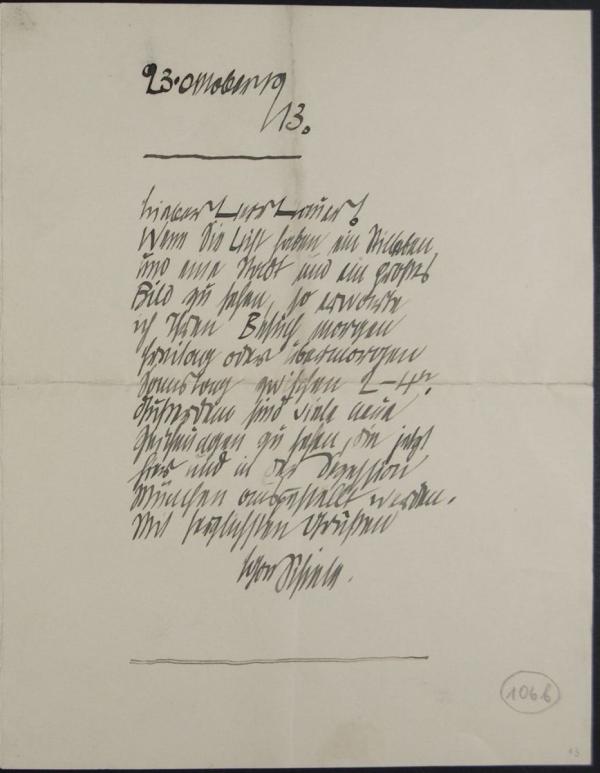 23. Oktober 19
13.
Lieber Herr Hauer!
Wenn Sie Lust haben ein
und eine Stadt und ein großes
Bild zu sehen, so erwarte
ich Ihren Besuch morgen
Freitag oder übermorgen
Samstag zwischen 2–4ʰ.
Außerdem sind viele neue
Zeichnungen zu sehen, die jetzt
hier und in der Sezession
München ausgestellt werden.
Mit herzlichsten Grüßen
Egon Schiele.
106 b